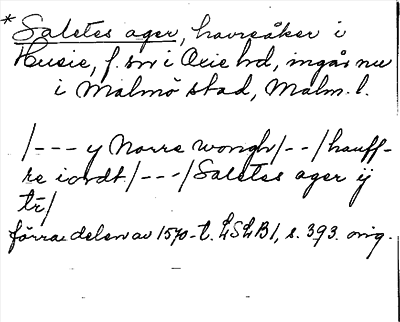 *Saletes ager, havreåker i
Husie, f. sn i Oxie hd, ingår nu
i Malmö stad, Malm. l.
/--- y Norre wongh/--/hauff-
re iordt/---/Saletes ager ij
tr/
förra delen av 1570-t. LSLB1, s. 393. orig.